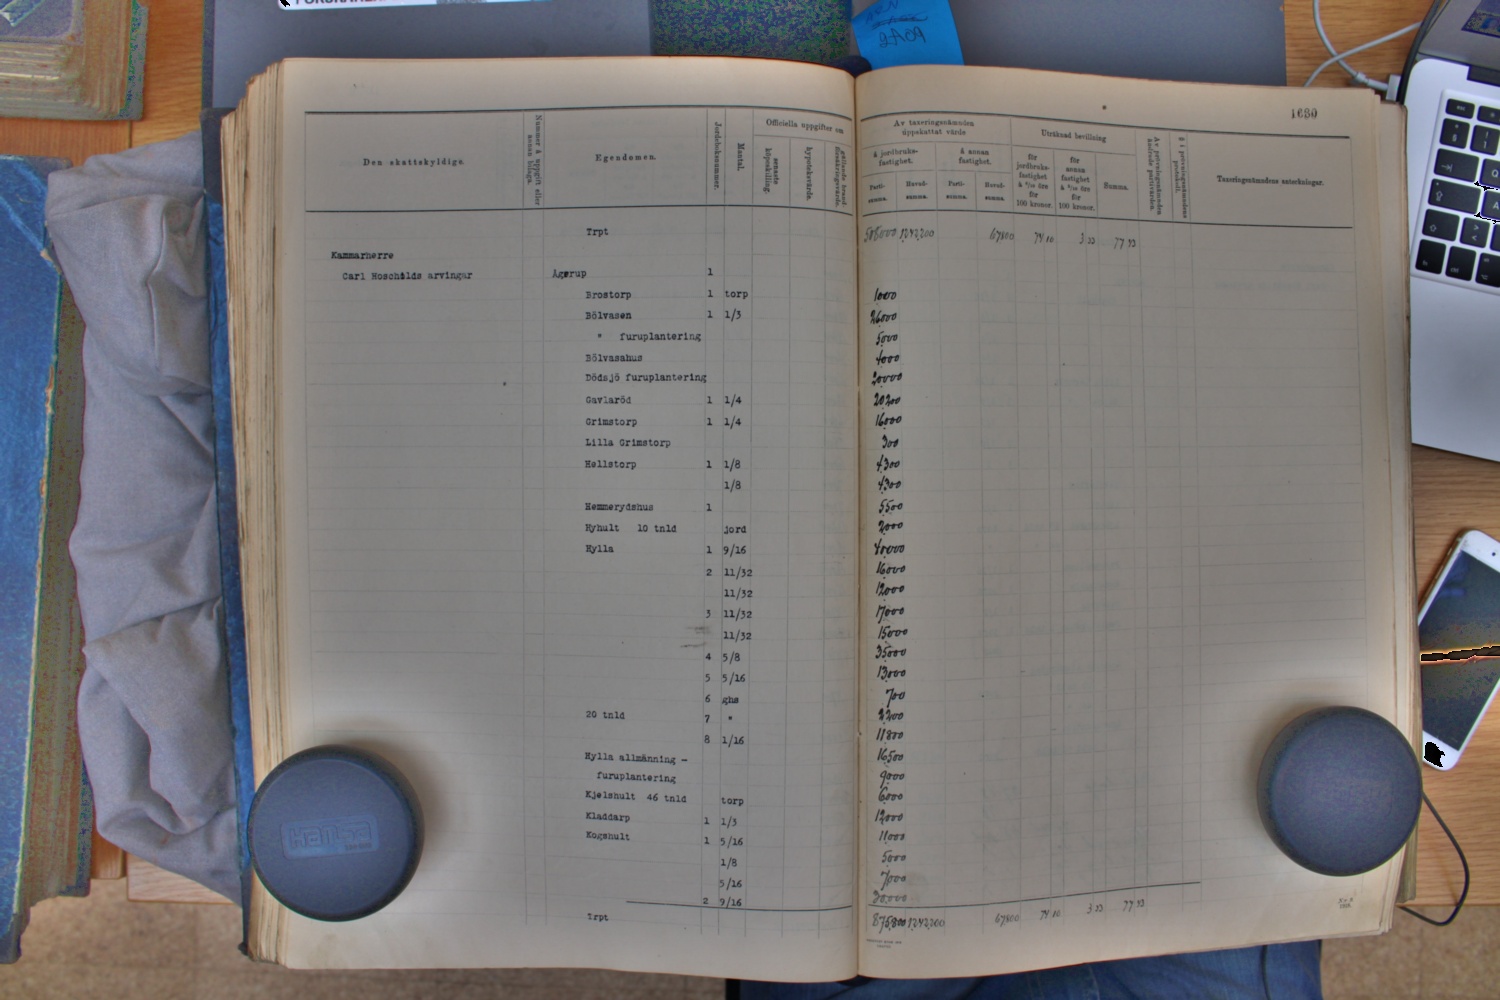 1680
Den skattskyldige.
Nummer å uppgift eller annan bilaga.
Egendomen.
Jordeboksnummer.
Mantal.
Officiella uppgifter om
senaste köpeskilling.
hypoteksvärde.
gällande brandförsäkringsvärde.
Av taxeringsnämnden uppskattat värde
å jordbruksfastighet.
å annan fastighet.
Partisumma.
Huvudsumma.
Partisumma.
Huvudsumma.
Uträknad bevillning
för jordbruksfastighet
för annan fastighet
för 100 kronor.
för 100 kronor.
Summa.
Taxeringsnämndens anteckningar.
Trpt 508000 1,242,200 67800 74 10 3 33 77 43
Kammarherre
Carl Hoschilds arvingar Ågerup 1
Brostorp 1 torp 1000
Bölvasen 1 1/3 26000
" furuplantering 5000
Bölvasahus 4000
Dödsjö furuplantering 20000
Gavlaröd 1 1/4 20200
Grimstorp 1 1/4 16000
Lilla Grimstorp 300
Hellstorp 1 1/8 4300
1/8 4300
Hemmerydshus 1 5500
Hyhult 10 tnld jord 2000
Hylla 1 9/16 40000
2 11/32 16000
11/32 12000
3 11/32 17000
11/32 15000
4 5/8 35000
5 5/16 13000
6 ghs 700
20 tnld 7 " 2200
8 1/16 11800
Hylla allmänning – 16500
furuplantering 9000
Kjelshult 46 tnld torp 6000
Kladdarp 1 1/3 12000
Kogshult 1 5/16 11000
1/8 5000
5/16 7000
2 9/16
Trpt 875,800 1,242,200 67800 74 10 3 33 77 43